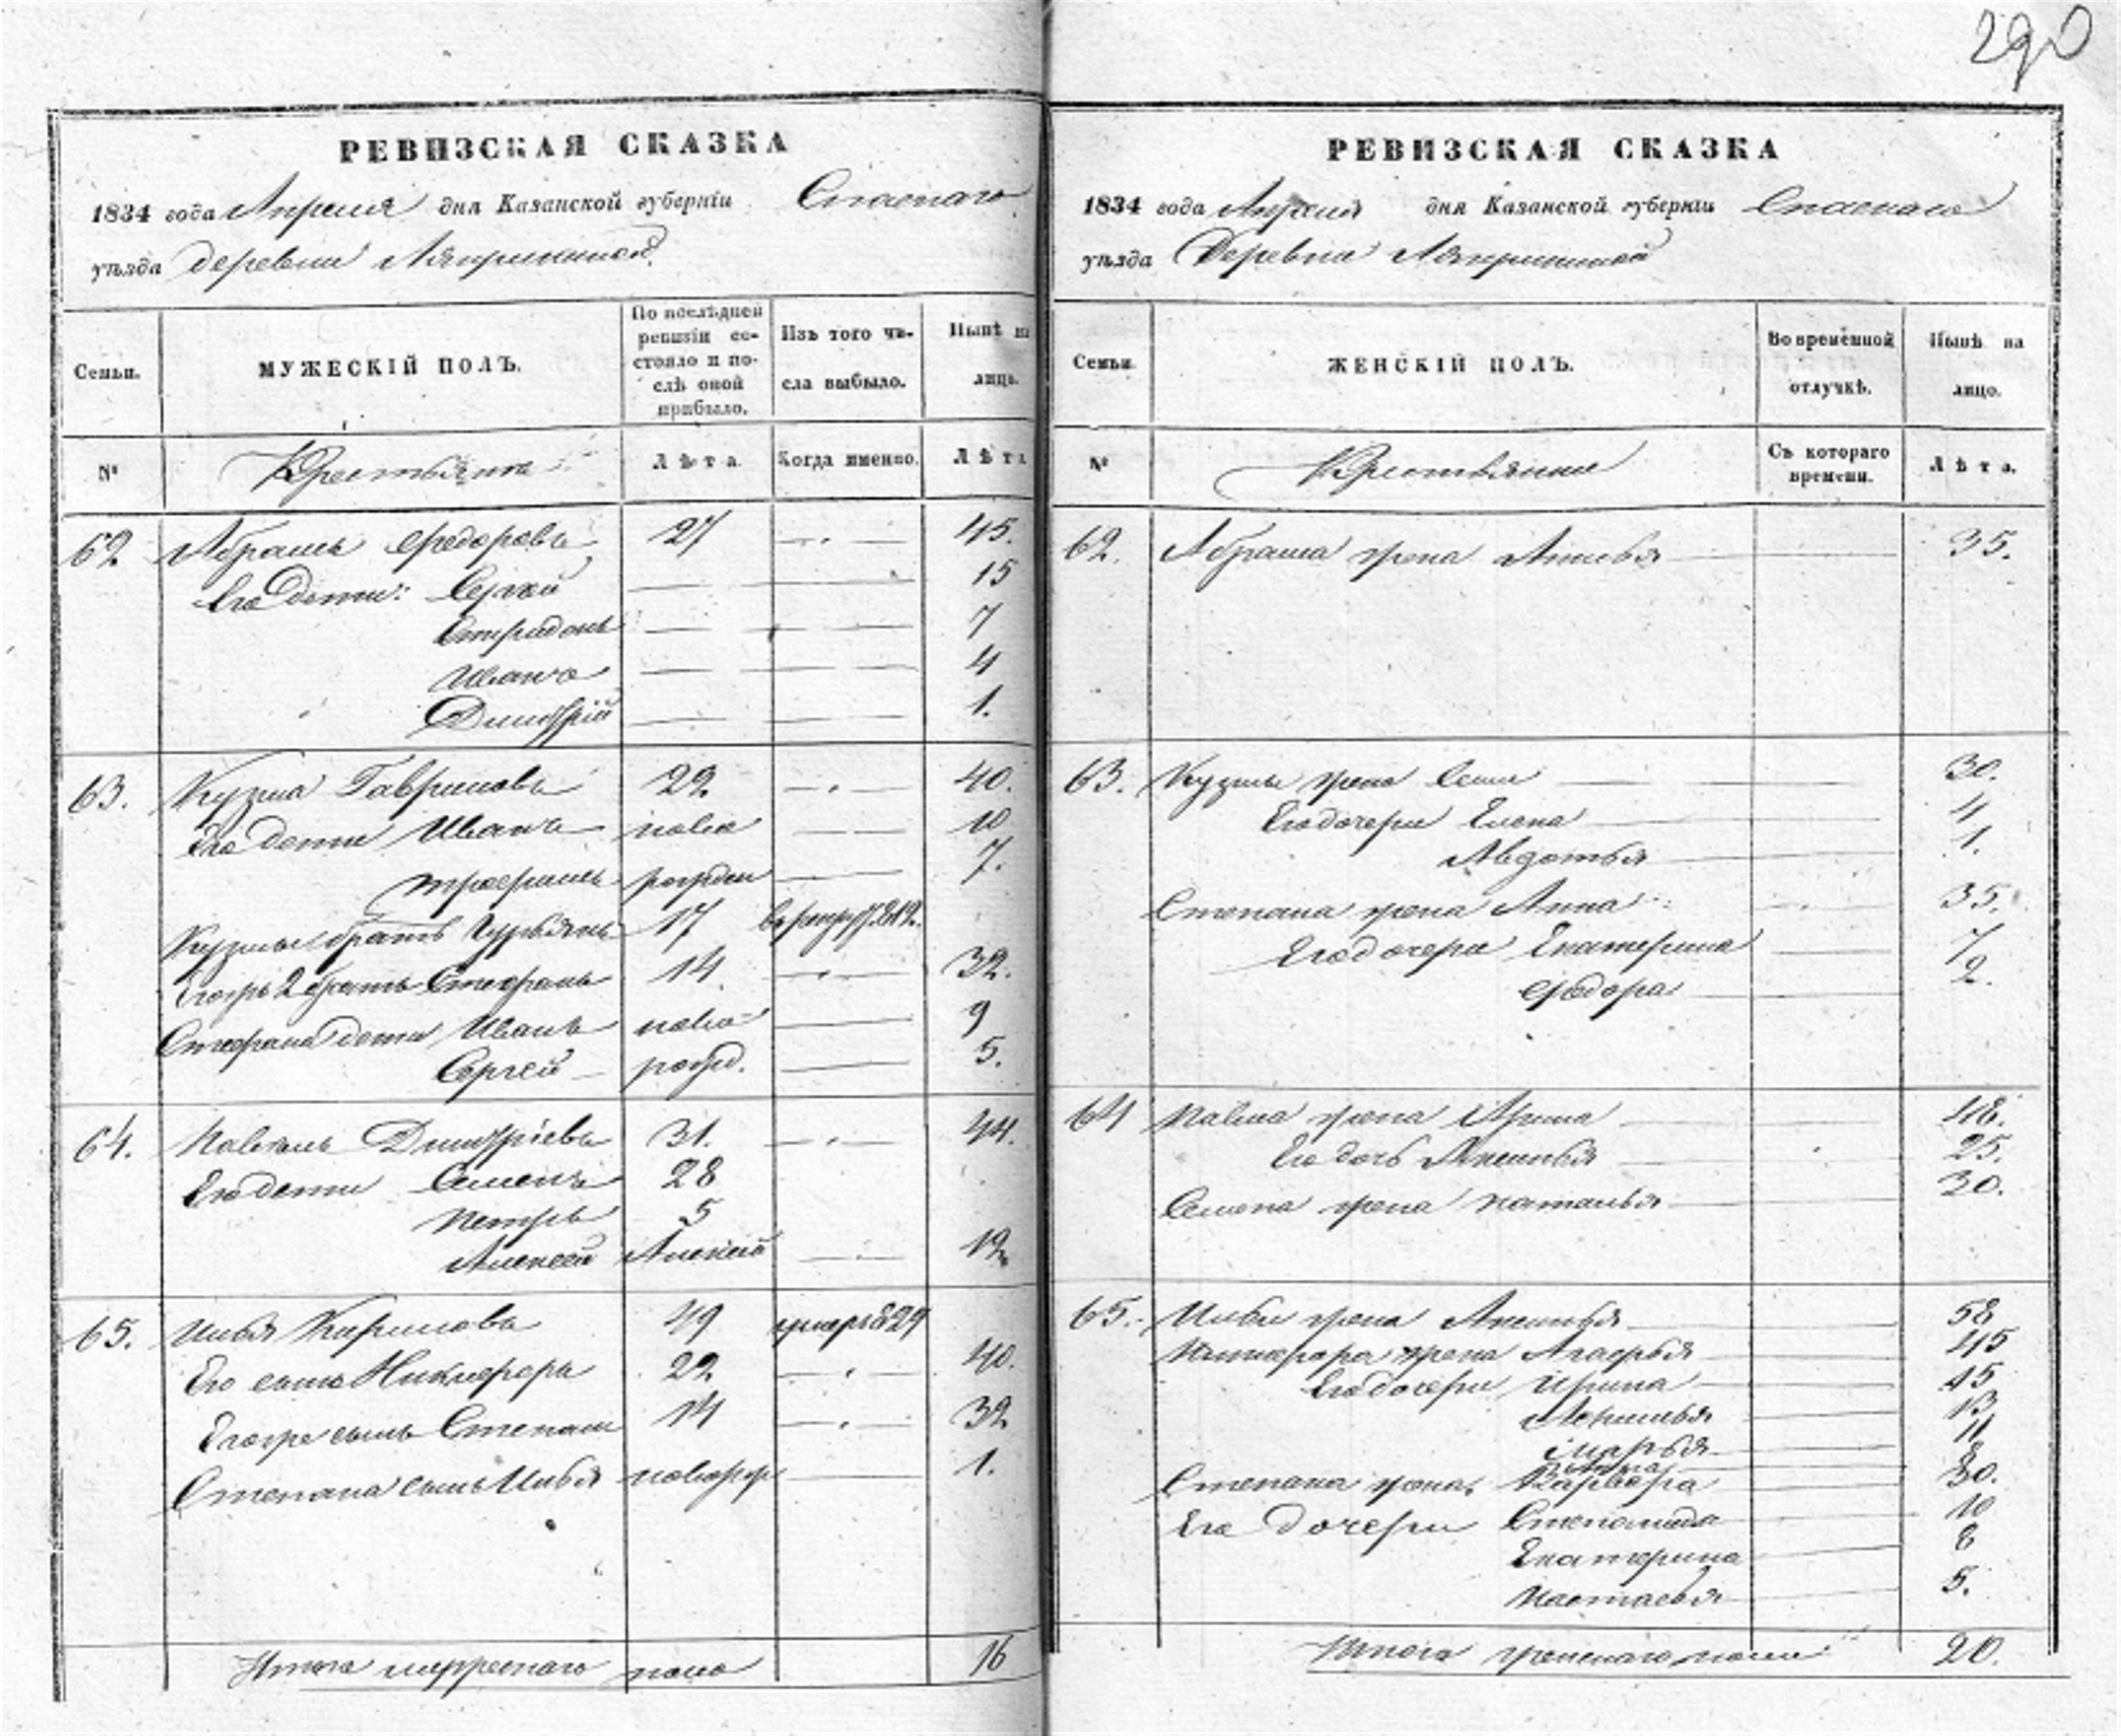 290
РЕВИЗСКАЯ СКАЗКА
1834 года Апреля дня Казанской губерніи Спаскаго
уѣзда деревни
Семьи.
МУЖЕСКІЙ ПОЛЪ.
По послѣдней ревизіи состояло и послѣ оной прибыло.
Изъ того числа выбыло.
Нынѣ на лицо.
№
Крестьяне
Лѣта.
Когда именно.
Лѣта
62 Абрамъ Федоровъ 27 45.
Его дети: Сергей 15
Спиридонъ 7
Иванъ 4
Димитрій 1.
63. Кузма Гавриловъ 22 40.
Его дети Иванъ ново 10
Трофимъ рожден 7.
Кузмы братъ 17
Его жъ 2 братъ Стефанъ 14. 32.
Стефана дети Иванъ ново 9
Сергей рожд. 5.
64. Павелъ Димитріевъ 31. 44.
Его дети Семенъ 28
Петръ 5
Алексей Алексей 12
65. Илья Кириловъ 49 умеръ 829
Его сынъ Никифоръ 22 40.
Его же сынъ Степанъ 14 32
Степана сынъ Илья поворож 1.
Итого мужескаго пола 16
РЕВИЗСКАЯ СКАЗКА
1834 года Апреля дня Казанской губерніи Спаскаго
уѣзда Деревни
Семьи.
ЖЕНСКІЙ ПОЛЪ.
Во временной отлучкѣ.
Нынѣ на лицо.
№
Крестьянки
Съ котораго времени.
Лѣта.
62. Абрама жена 35.
63. Кузмы жена 30.
Его дочери Елена 4
Авдотья 1.
Степана жена Анна 35.
Его дочери Екатерина 7
Федора 2.
64 Павла жена Арина 48.
Его дочь Аксинья 25.
Семена жена Наталья 30.
65. Ильи жена Аксинья 58
Никифора жена Агафья 45
Его дочери Ирина 15
13
Марья 11
Анна 8
Степана жена, Варвара 30.
Его дочери Степанида 10
Екатерина 8
Настасья 5.
Итого женскаго пола 20.